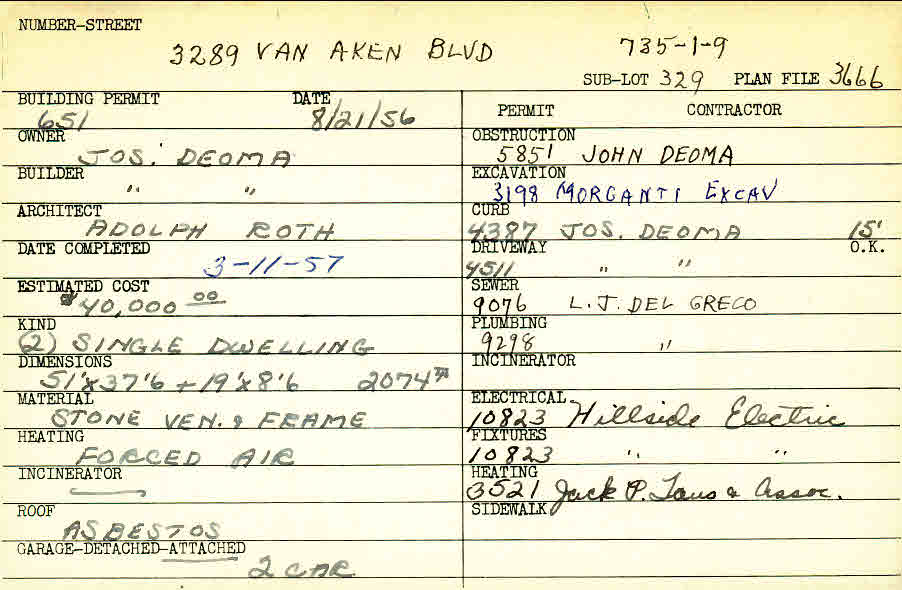 NUMBER-STREET
3289 VAN AKEN BLVD 735-1-9
SUB-LOT 329 PLAN FILE 3666
BUILDING PERMIT DATE
651 8/21/56
OWNER
JOS. DEOMA
BUILDER
" "
ARCHITECT
ADOLPH ROTH
DATE COMPLETED
3-11-57
ESTIMATED COST
$40,000 00
KIND
(2) SINGLE DWELLING
DIMENSIONS
51'x37'6 + 19'x8'6 2074
MATERIAL
STONE VEN. & FRAME
HEATING
FORCED AIR
INCINERATOR
ROOF
ASBESTOS
GARAGE-DETACHED-ATTACHED
2 CAR
PERMIT CONTRACTOR
OBSTRUCTION
5851 JOHN DEOMA
EXCAVATION
3198 MORGANTI EXCAV
CURB
4387 JOS. DEOMA 15'
DRIVEWAY O.K.
4511 " "
SEWER
9076 L.J. DEL GRECO
PLUMBING
9298 "
INCINERATOR
ELECTRICAL
10823 Hillside Electric
FIXTURES
10823 " "
HEATING
3521 Jack P. & Assoc.
SIDEWALK